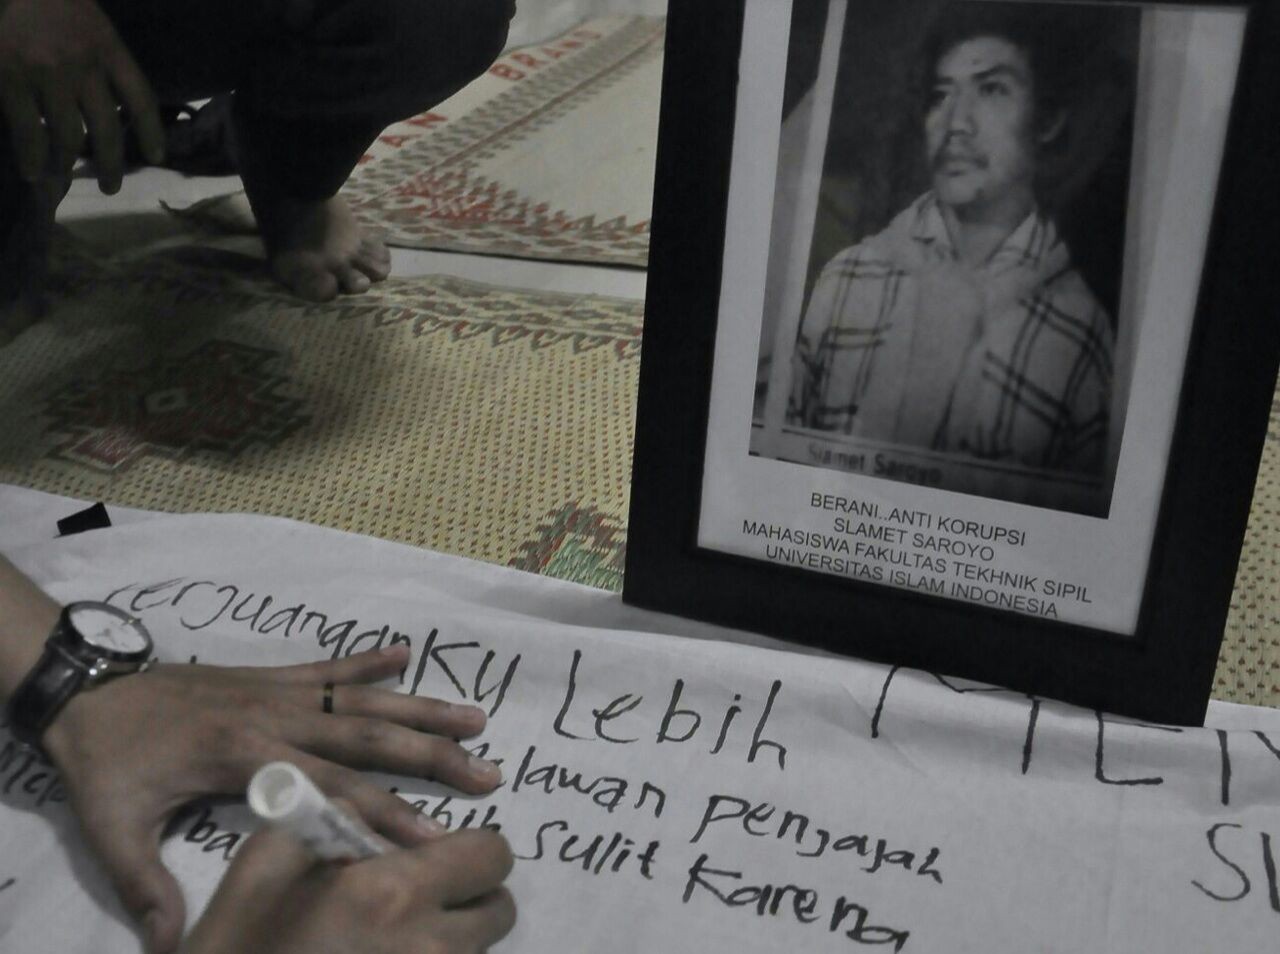 BRANO
Slamet Saroyo
BERANI..ANTI KORUPSI
SLAMET SAROYO
MAHASISWA FAKULTAS TEKHNIK SIPIL
UNIVERSITAS ISLAM INDONESIA
PerjuanganKu Lebih
Melawan penjajah
Lebih Sulit Karena